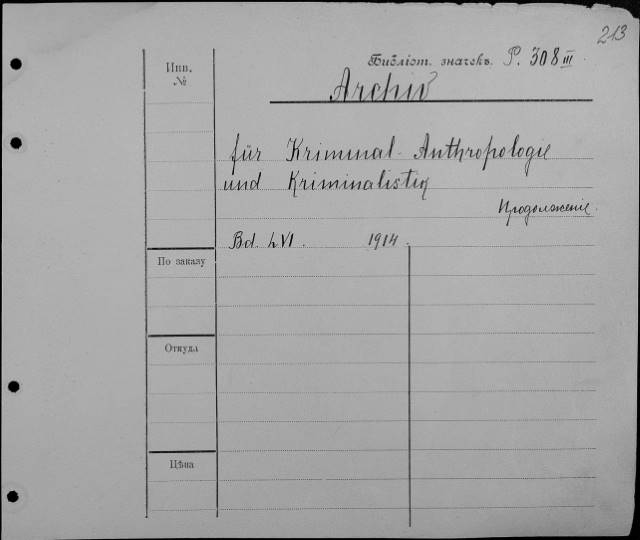 213
Инв. №
Библіот. значекъ. P. 308 III
Archiv
für Kriminal-Anthropologie
und Kriminalistik
Продолженіе.
Bd. LVI. 1914.
По заказу
Откуда
Цѣна